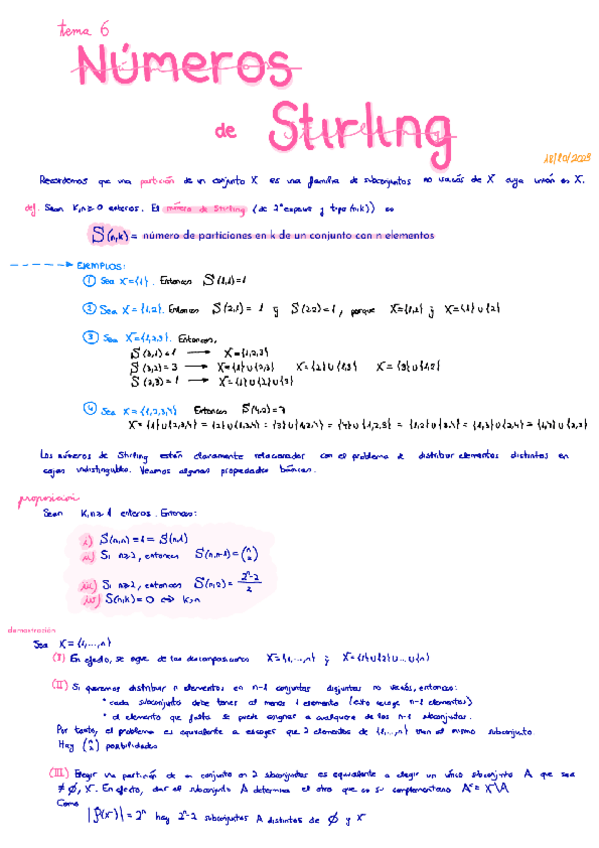 tema 6
Números
de Stirling
18/10/2023
Recordemos que una partición de un conjunto X es una familia de subconjuntos no vacíos de X cuya unión es X.
def. Sean k,n≥0 enteros. El número de Stirling (de 2ª especie y tipo (n,k)) es
S(n,k) = número de particiones en k de un conjunto con n elementos
EJEMPLOS:
① Sea X={1}. Entonces S(1,1)=1
② Sea X={1,2}. Entonces S(2,1)=1 y S(2,2)=1, porque X={1,2} y X={1}∪{2}
③ Sea X={1,2,3}. Entonces,
S(3,1)=1 → X={1,2,3}
S(3,2)=3 → X={1}∪{2,3} X={2}∪{1,3} X={3}∪{1,2}
S(3,3)=1 → X={1}∪{2}∪{3}
④ Sea X={1,2,3,4} Entonces S(4,2)=7
X={1}∪{2,3,4} = {2}∪{1,3,4} = {3}∪{1,2,4} = {4}∪{1,2,3} = {1,2}∪{3,4} = {1,3}∪{2,4} = {1,4}∪{2,3}
Los números de Stirling están claramente relacionados con el problema de distribuir elementos distintos en
cajas indistinguibles. Veamos algunas propiedades básicas.
proposición
Sean k,n≥1 enteros. Entonces:
i) S(n,n)=1=S(n,1)
ii) Si n≥2, entonces S(n,n-1)=(n 2)
iii) Si n≥2, entonces S(n,2)= 2ⁿ-2 / 2
iv) S(n,k)=0 ⇔ k>n
demostración
Sea X={1,...,n}
(I) En efecto, se sigue de las descomposiciones X={1,...,n} y X={1}∪{2}∪...∪{n}
(II) Si queremos distribuir n elementos en n-1 conjuntos disjuntos no vacíos, entonces:
* cada subconjunto debe tener al menos 1 elemento (esto escoge n-1 elementos)
* el elemento que falta se puede asignar a cualquiera de los n-1 subconjuntos.
Por tanto, el problema es equivalente a escoger que 2 elementos de {1,...,n} van al mismo subconjunto.
Hay (n 2) posibilidades
(III) Elegir una partición de un conjunto en 2 subconjuntos es equivalente a elegir un único subconjunto A que sea
≠∅, X. En efecto, dar el subconjunto A determina el otro que es su complementario Aᶜ=X\A
Como
|P(X)|=2ⁿ hay 2ⁿ-2 subconjuntos A distintos de ∅ y X